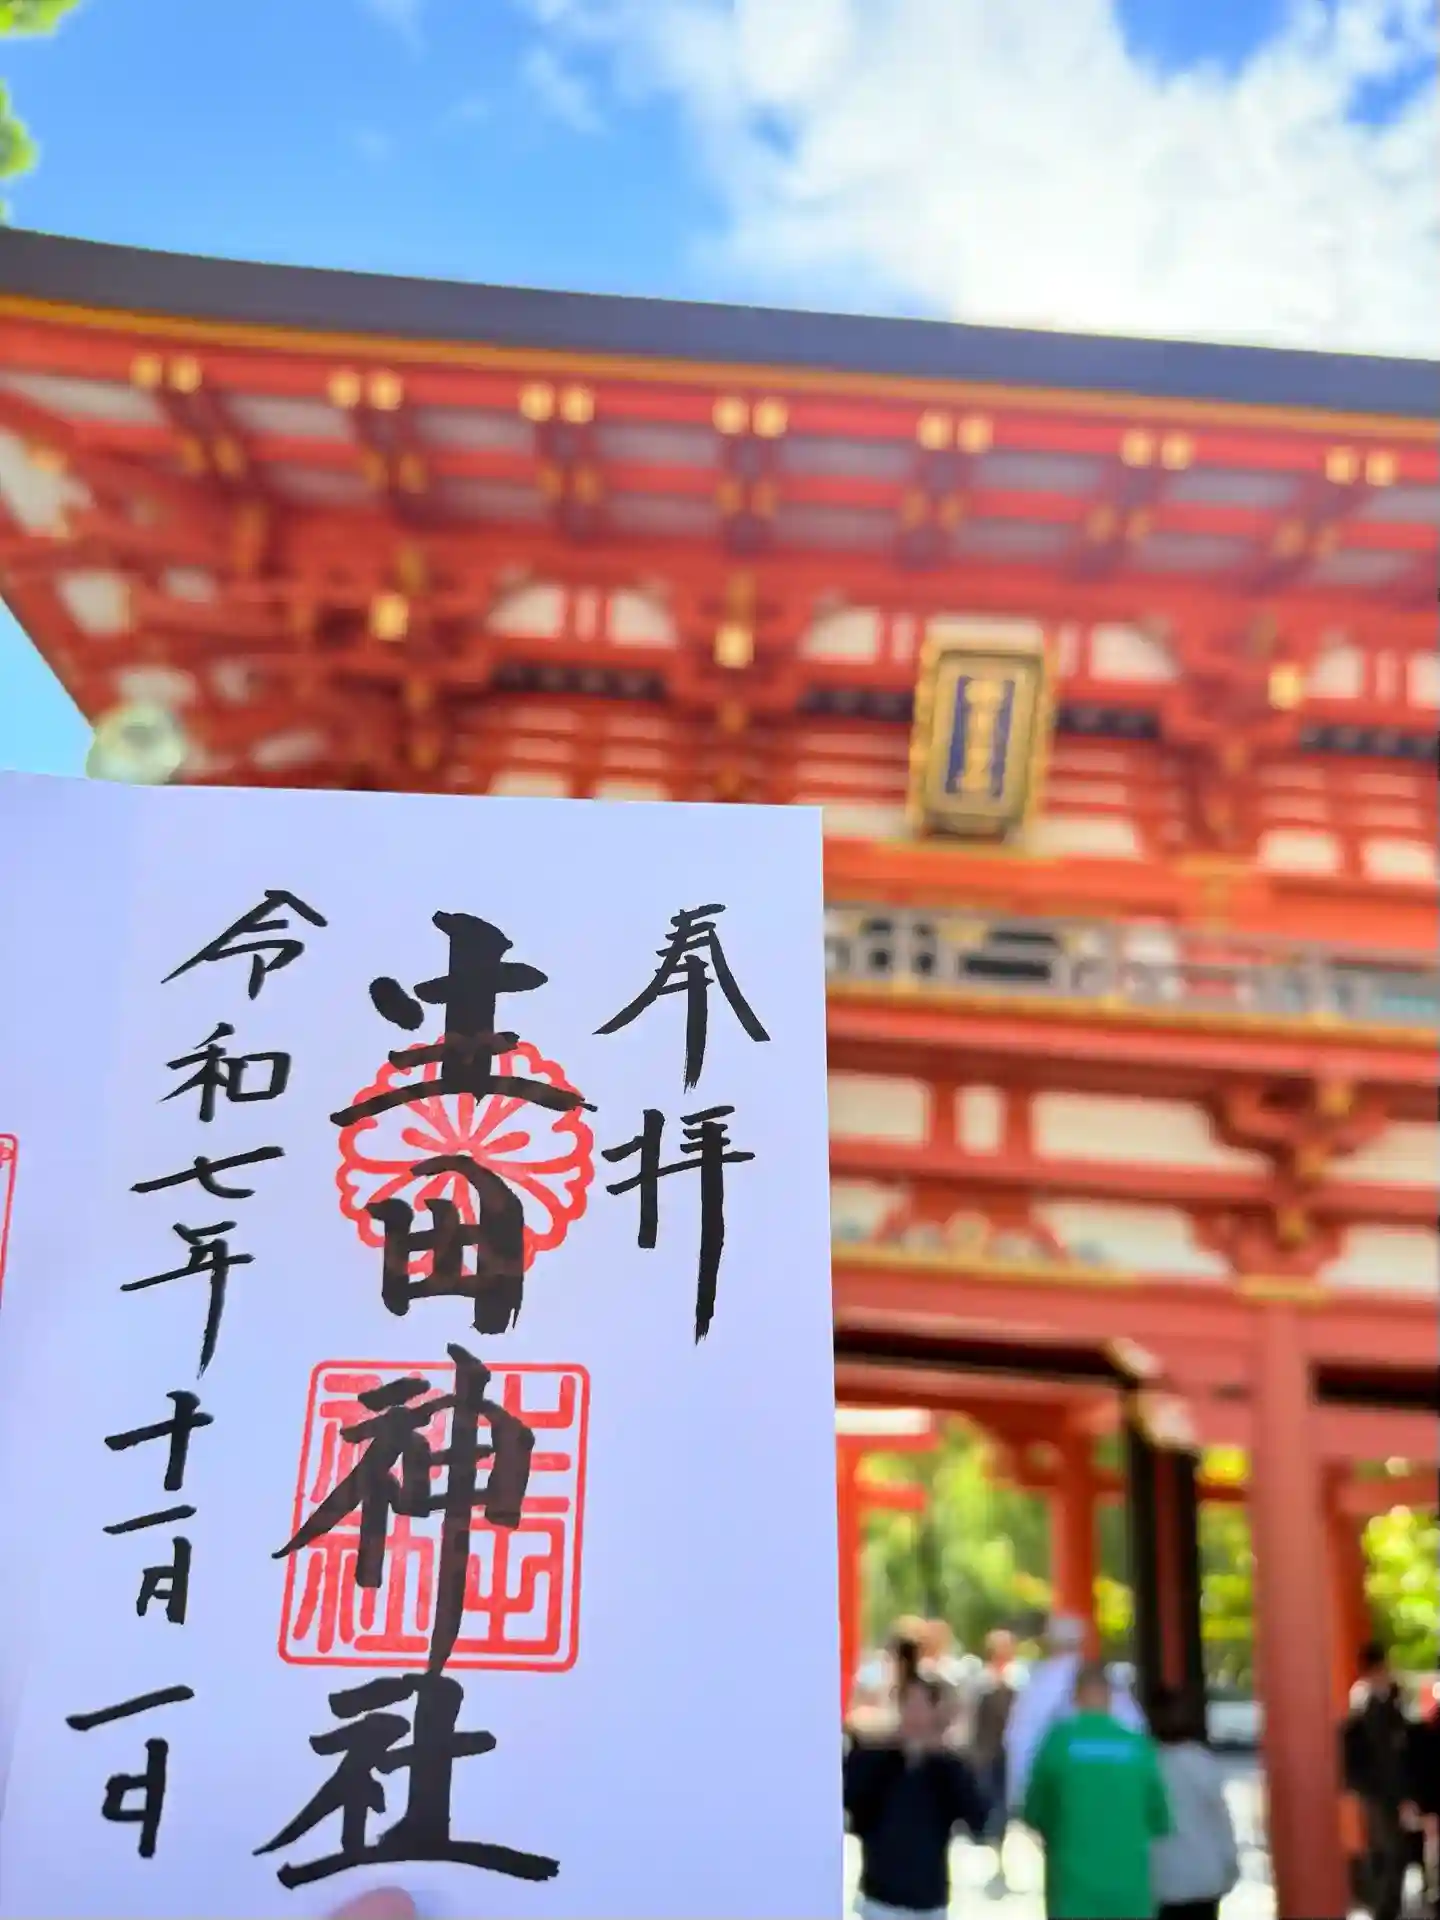 奉拝
生田神社
令和七年十一月一日
生田神社